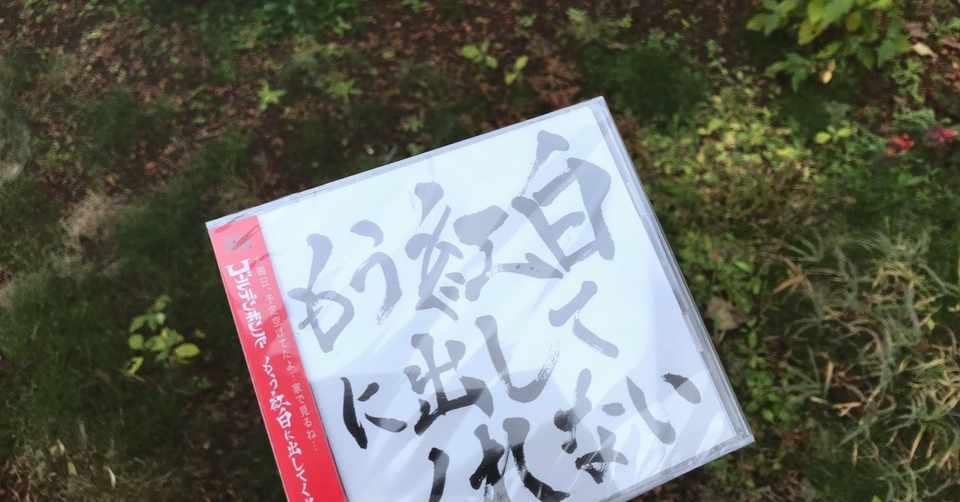 もう紅白
に出して
くれない
ゴールデンボンバー もう紅白に出してく
家で見るね…